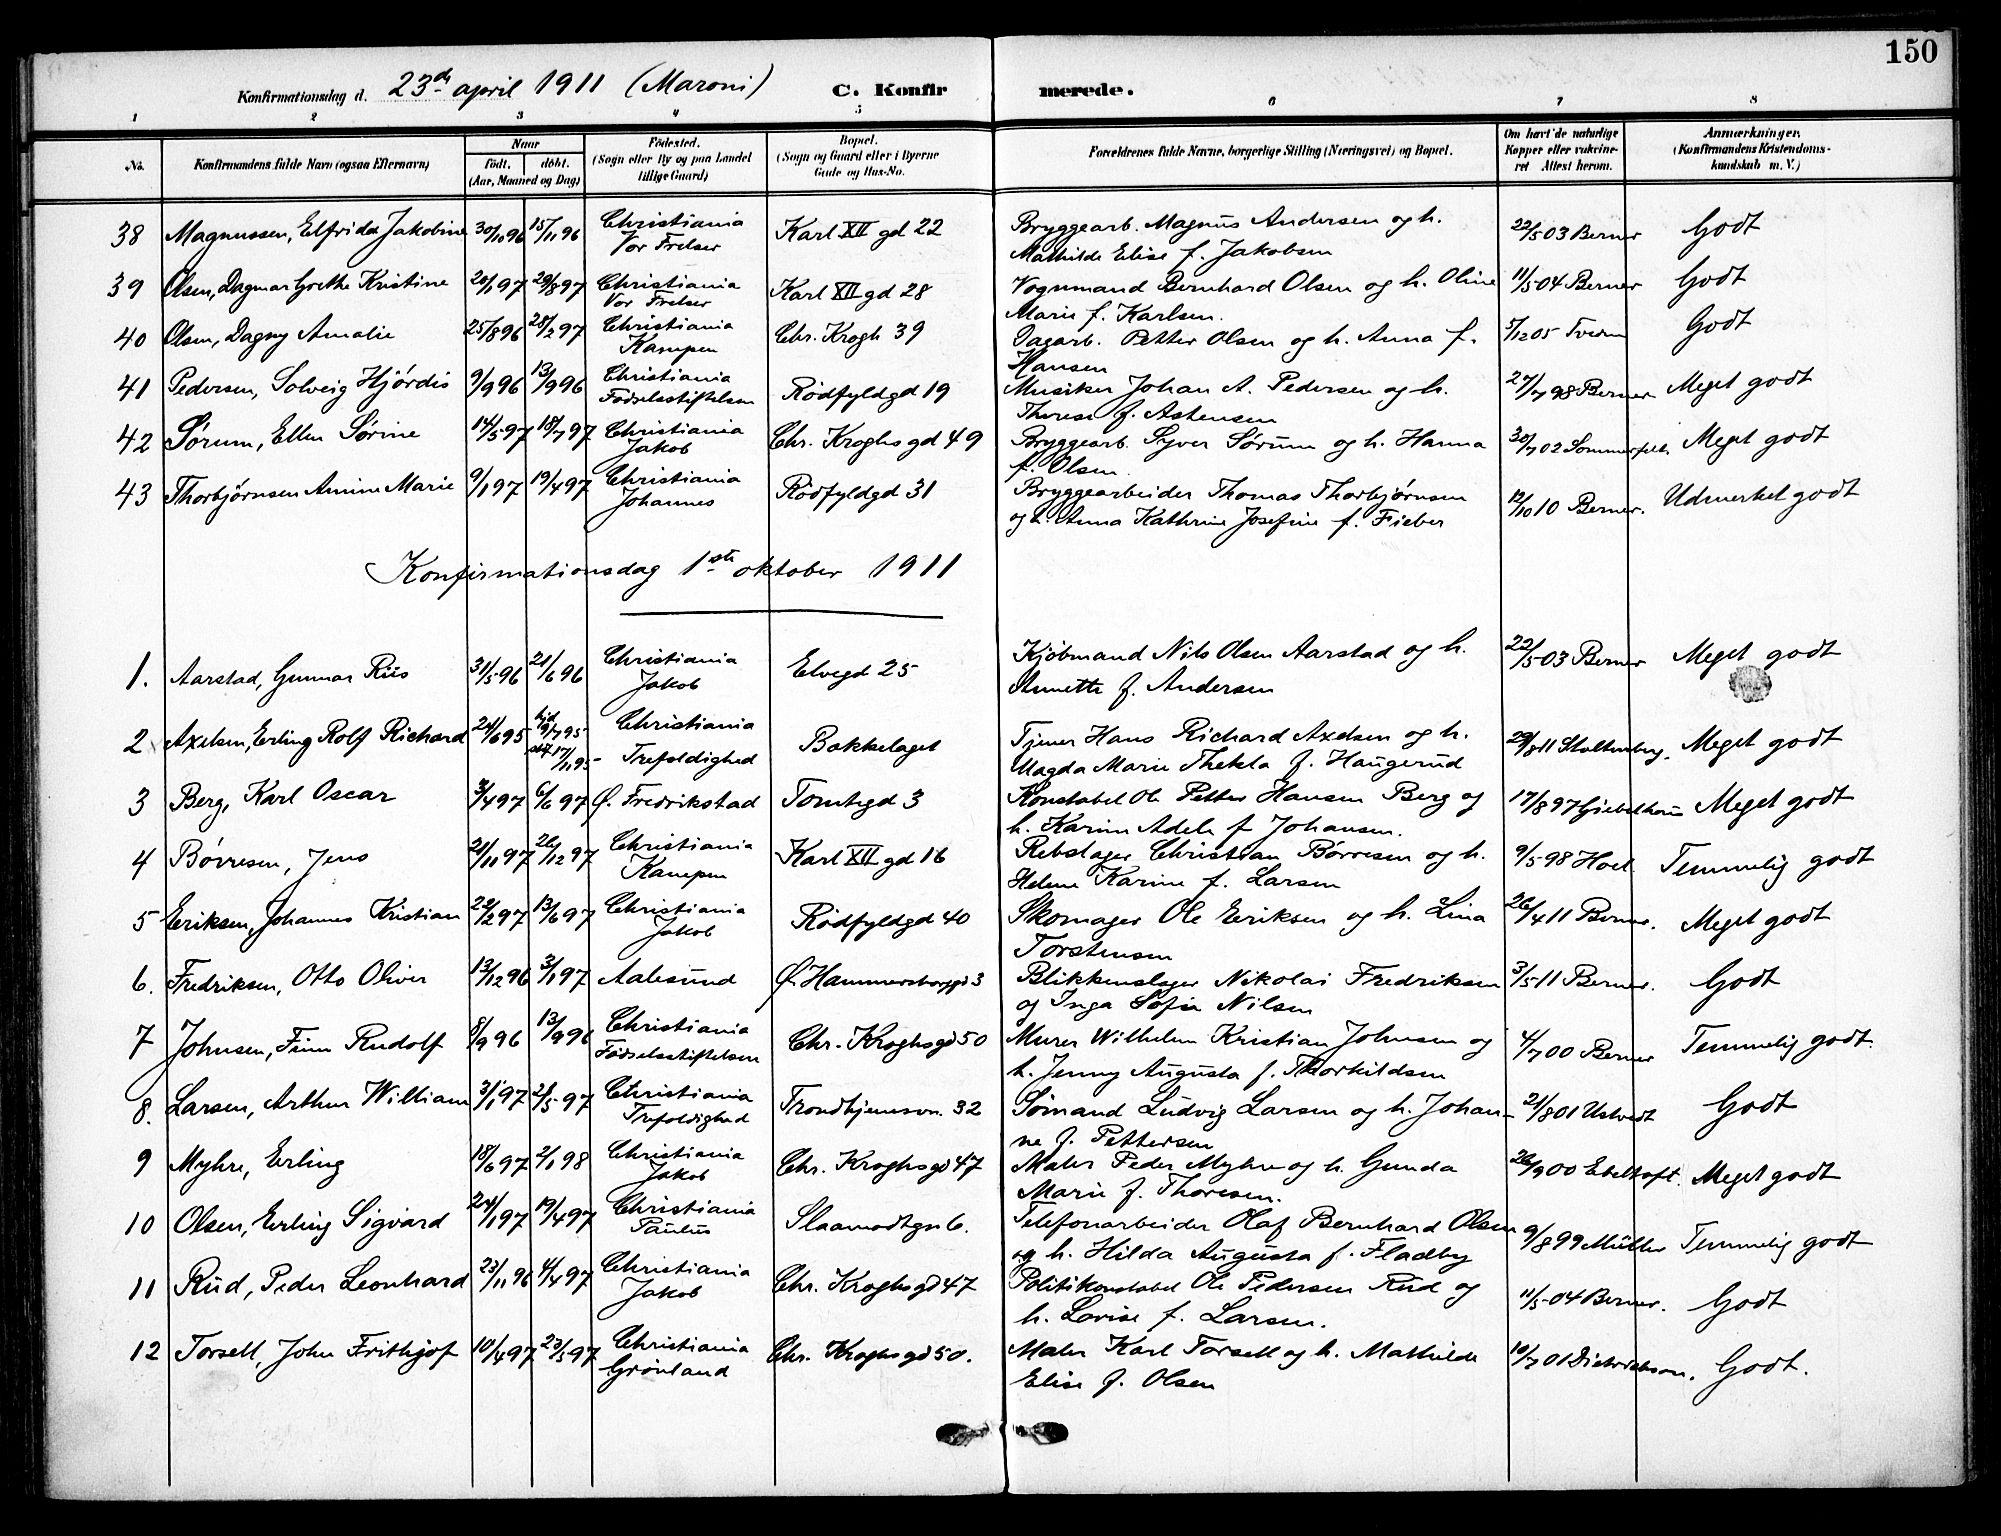 150
Konfirmationsdag d. 23de april 1911 (Maroni) C. Konfirmerede.
1 2 3 4 5 6 7 8
No. Konfirmandens fulde Navn (ogsaa Efternavn) Naar født. døbt. (Aar, Maaned og Dag) Fødested. (Sogn eller By og paa Landet tillige Gaard) Bopæl. (Sogn og Gaard eller i Byerne Gade og Hus-No. Forældrenes fulde Navne, borgerlige Stilling (Næringsvei) og Bopæl. Om havt de naturlige Kopper eller vaccineret Attest herom. Anmærkninger. (Konfirmandens Kristendomskundskab m. V.)
38 Magnussen, Elfrida Jakobine 30/10 96 15/11 96 Christiania Vor Frelser Karl XII gd 22 Bryggearb. Magnus Andersen og h. Mathilde Elise f. Jakobsen 22/5 03 Berner Godt
39 Olsen, Dagmar Grethe Kristine 20/1 97 29/8 97 Christiania Vor Frelser Karl XII gd 28 Vognmand Bernhard Olsen og h. Oline Marie f. Karlsen. 11/5 04 Berner Godt
40 Olsen, Dagny Amalie 25/8 96 28/2 97 Christiania Kampen Chr. Krogh 39 Dagarb. Petter Olsen og h. Anna f. Hansen 5/12 05 Godt
41 Pedersen, Solveig Hjørdis 9/9 96 13/9 96 Christiania Fødselsstiftelsen Rødfyldgd 19 Musiker Johan A. Pedersen og h. Therese f. Astensen 27/7 98 Berner Meget godt
42 Sørum, Ellen Sørine 14/5 97 18/7 97 Christiania Jakob Chr. Kroghsgd 49 Bryggearb. Syver Sørum og h. Hanna f. Olsen. 30/7 02 Sommerfelt Meget godt
43 Thorbjørnsen Anine Marie 9/1 97 19/4 97 Christiania Johannes Rødfyldgd 31 Bryggearbeider Thomas Thorbjørnsen og h. Anna Kathrine Josefine f. Fieber 12/10 10 Berner. Udmerket godt
Konfirmationsdag 1ste oktober 1911
1. Aarstad, Gunnar Riis 31/5 96 21/6 96 Christiania Jakob Elvegd 25 Kjøbmand Nils Olsen Aarstad og h. Annette f. Andersen 22/5 03 Berner Meget godt
2 Axelsen, Erling Rolf Richard 24/6 95 hjd 9/7 95 stf 17/11 95 Christiania Trefoldighed Bakkelaget Tjener Hans Richard Axelsen og h. Magda Marie Thekla f. Haugerud 29/8 11 Stoltenberg. Meget godt
3 Berg, Karl Oscar 3/4 97 6/6 97 Ø. Fredrikstad Tomtegd 3 Konstabel Ole Petter Hansen Berg og h. Karine Adele f Johansen. 17/8 97 Meget godt
4 Børresen, Jens 21/11 97 26/12 97 Christiania Kampen Karl XII gd 16 Rebslager Christian Børresen og h. Helene Karine f. Larsen 9/5 98 Hoel Temmelig godt
5 Eriksen, Johannes Kristian 22/2 97 13/6 97 Christiania Jakob Rødfyldgd 40 Skomager Ole Eriksen og h. Lina Torstensen 26/4 11 Berner. Meget godt
6. Fredriksen, Otto Oliver 13/12 96 3/1 97 Aalesund Ø. Hammersborggd 3 Blikkenslager Nikolai Fredriksen og Inga Sofie Nilsen 3/5 11 Berner. Godt
7 Johnsen, Finn Rudolf 8/9 96 13/9 96 Christiania Fødselsstiftelsen Chr. Kroghsgd 50 Murer Wilhelm Kristian Johnsen og h. Jenny Augusta f. Thorkildsen 4/7 00 Berner Temmelig godt.
8. Larsen, Arthur William 3/1 97 2/5 97 Christiania Trefoldighed Trondhjemsvn. 32 Sømand Ludvig Larsen og h. Johanne f. Pettersen 21/8 01 Ustvedt Godt
9 Myhre, Erling 18/6 97 2/1 98 Christiania Jakob Chr. Kroghsgd 47 Maler Peder Myhre og h. Gunda Marie f. Thoresen. 26/9 00 Ebeltoft. Meget godt
10 Olsen, Erling Sigvard 24/1 97 19/4 97 Christiania Paulus Slaamotgn 6. Telefonarbeider Olaf Bernhard Olsen og h. Hilda Augusta f. Fladby 9/8 99 Müller Temmelig godt
11 Rud, Peder Leonhard 23/11 96 4/4 97 Christiania Jakob Chr. Kroghsgd 47 Politikonstabel Ole Pedersen Rud og h. Lovise f. Larsen. 11/5 04 Berner. Godt
12 Torsell, John Frithjof 10/4 97 23/5 97 Christiania Grønland Chr. Kroghsgd 50. Maler Karl Torsell og h. Mathilde Elise f. Olsen 10/7 01 Dietrichson. Godt.